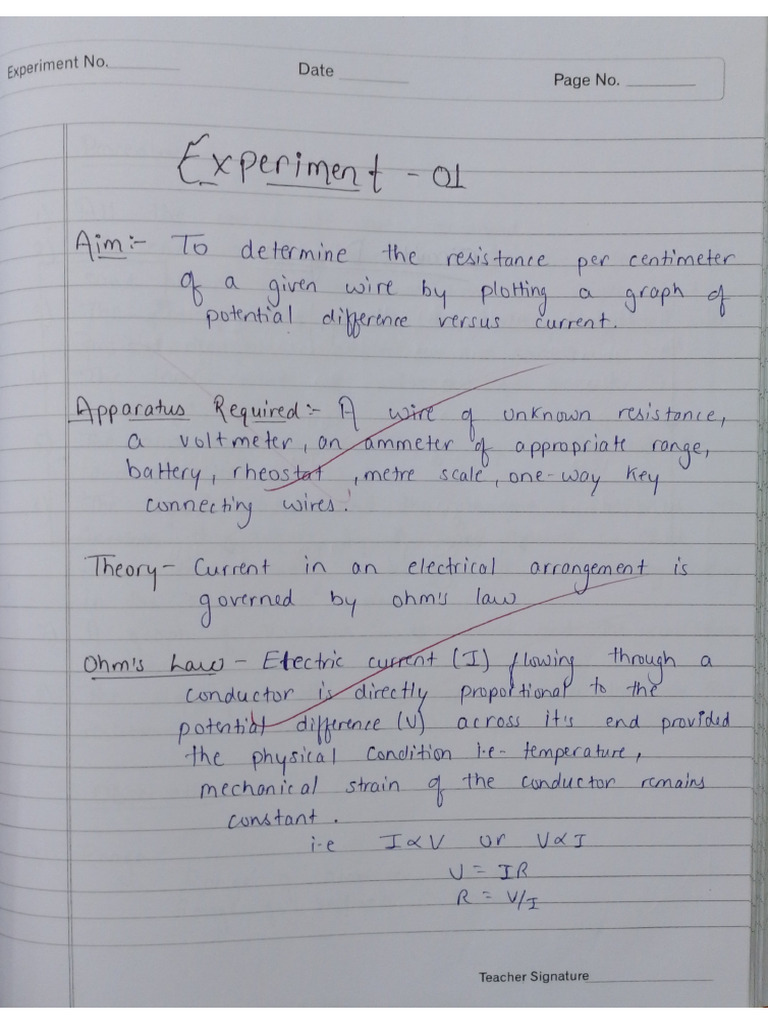 Experiment No.
Date
Page No.
Experiment - 01
Aim:- To determine the resistance per centimeter
of a given wire by plotting a graph of
potential difference versus current.
Apparatus Required:- A wire of unknown resistance,
a voltmeter, an ammeter of appropriate range,
battery, rheostat, metre scale, one-way key
connecting wires.
Theory - Current in an electrical arrangement is
governed by ohm's law
Ohm's Law - Electric current (I) flowing through a
conductor is directly proportional to the
potential difference (V) across it's end provided
the physical condition i.e- temperature,
mechanical strain of the conductor remains
constant.
i-e I∝V or V∝I
V = IR
R = V/I
Teacher Signature